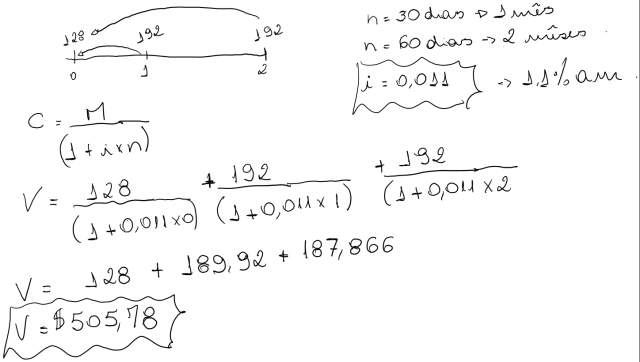 128 192 192
0 1 2
n = 30 dias → 1 mês
n = 60 dias → 2 mêses.
i = 0,011 → 1,1% a.m.
C = M / (1 + i x n)
V = 128 / (1 + 0,011 x 0) + 192 / (1 + 0,011 x 1) + 192 / (1 + 0,011 x 2
V = 128 + 189,92 + 187,866
V = $505,78